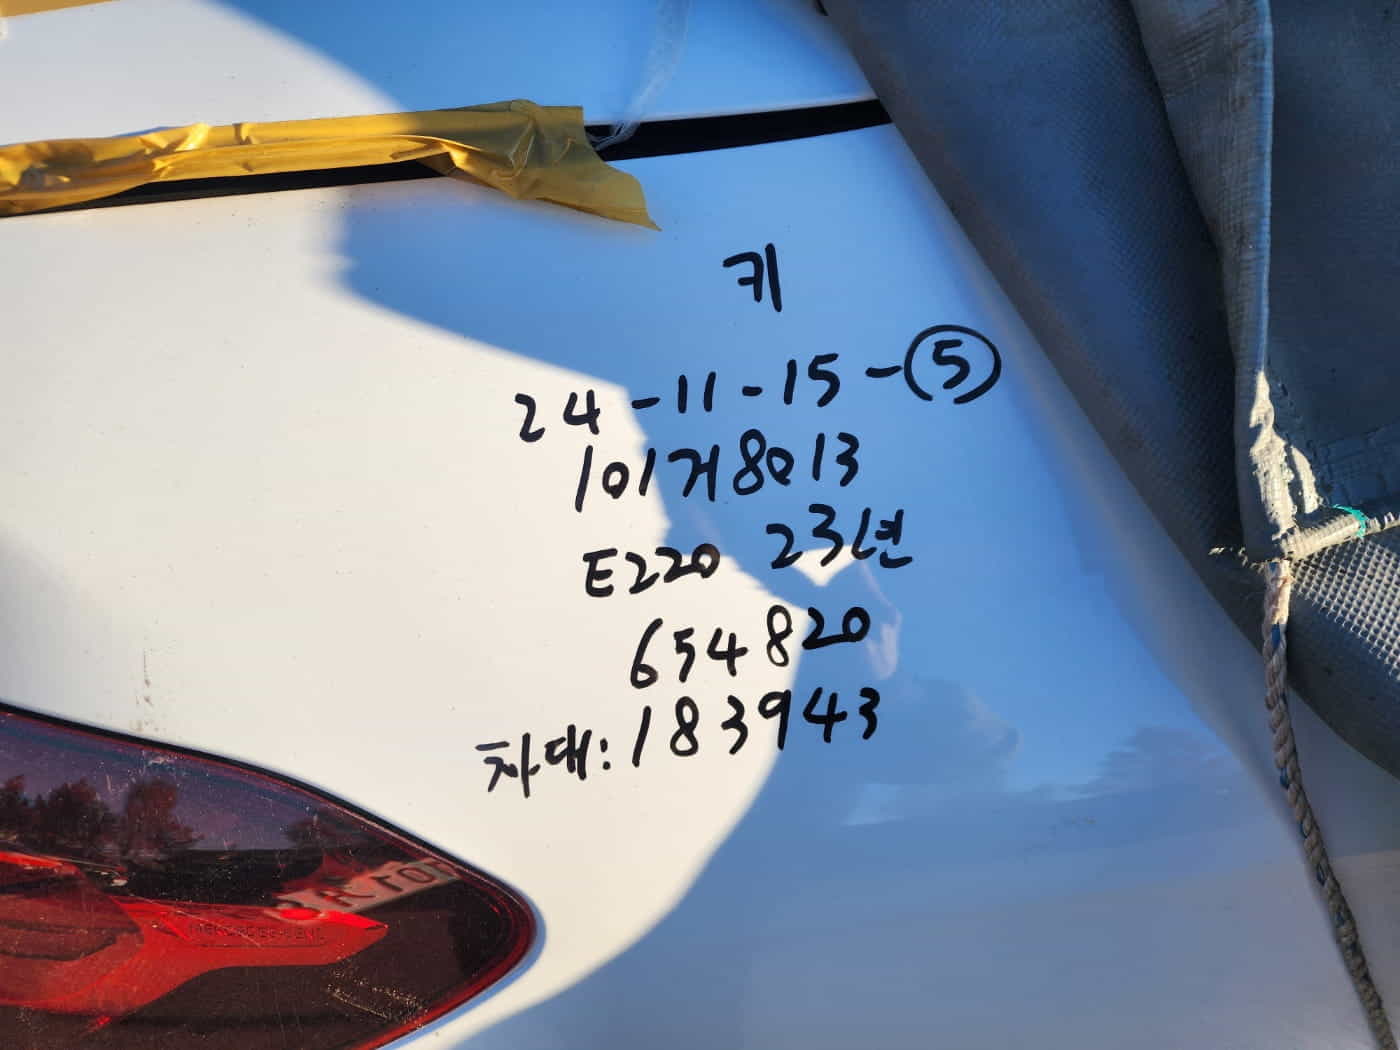 키
24-11-15-⑤
101거8013
E220 23년
654820
차대:183943
MERCEDES-BENZ